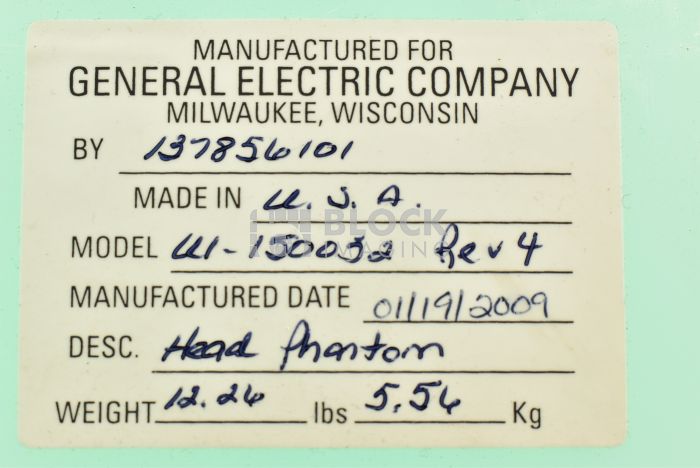 MANUFACTURED FOR
GENERAL ELECTRIC COMPANY
MILWAUKEE, WISCONSIN
BY 137856101
MADE IN U.S.A.
BLOCK
IMAGING
MODEL UI-150032 Rev 4
MANUFACTURED DATE 01/19/2009
DESC. Head Phantom
WEIGHT 12.26 lbs 5.56 Kg